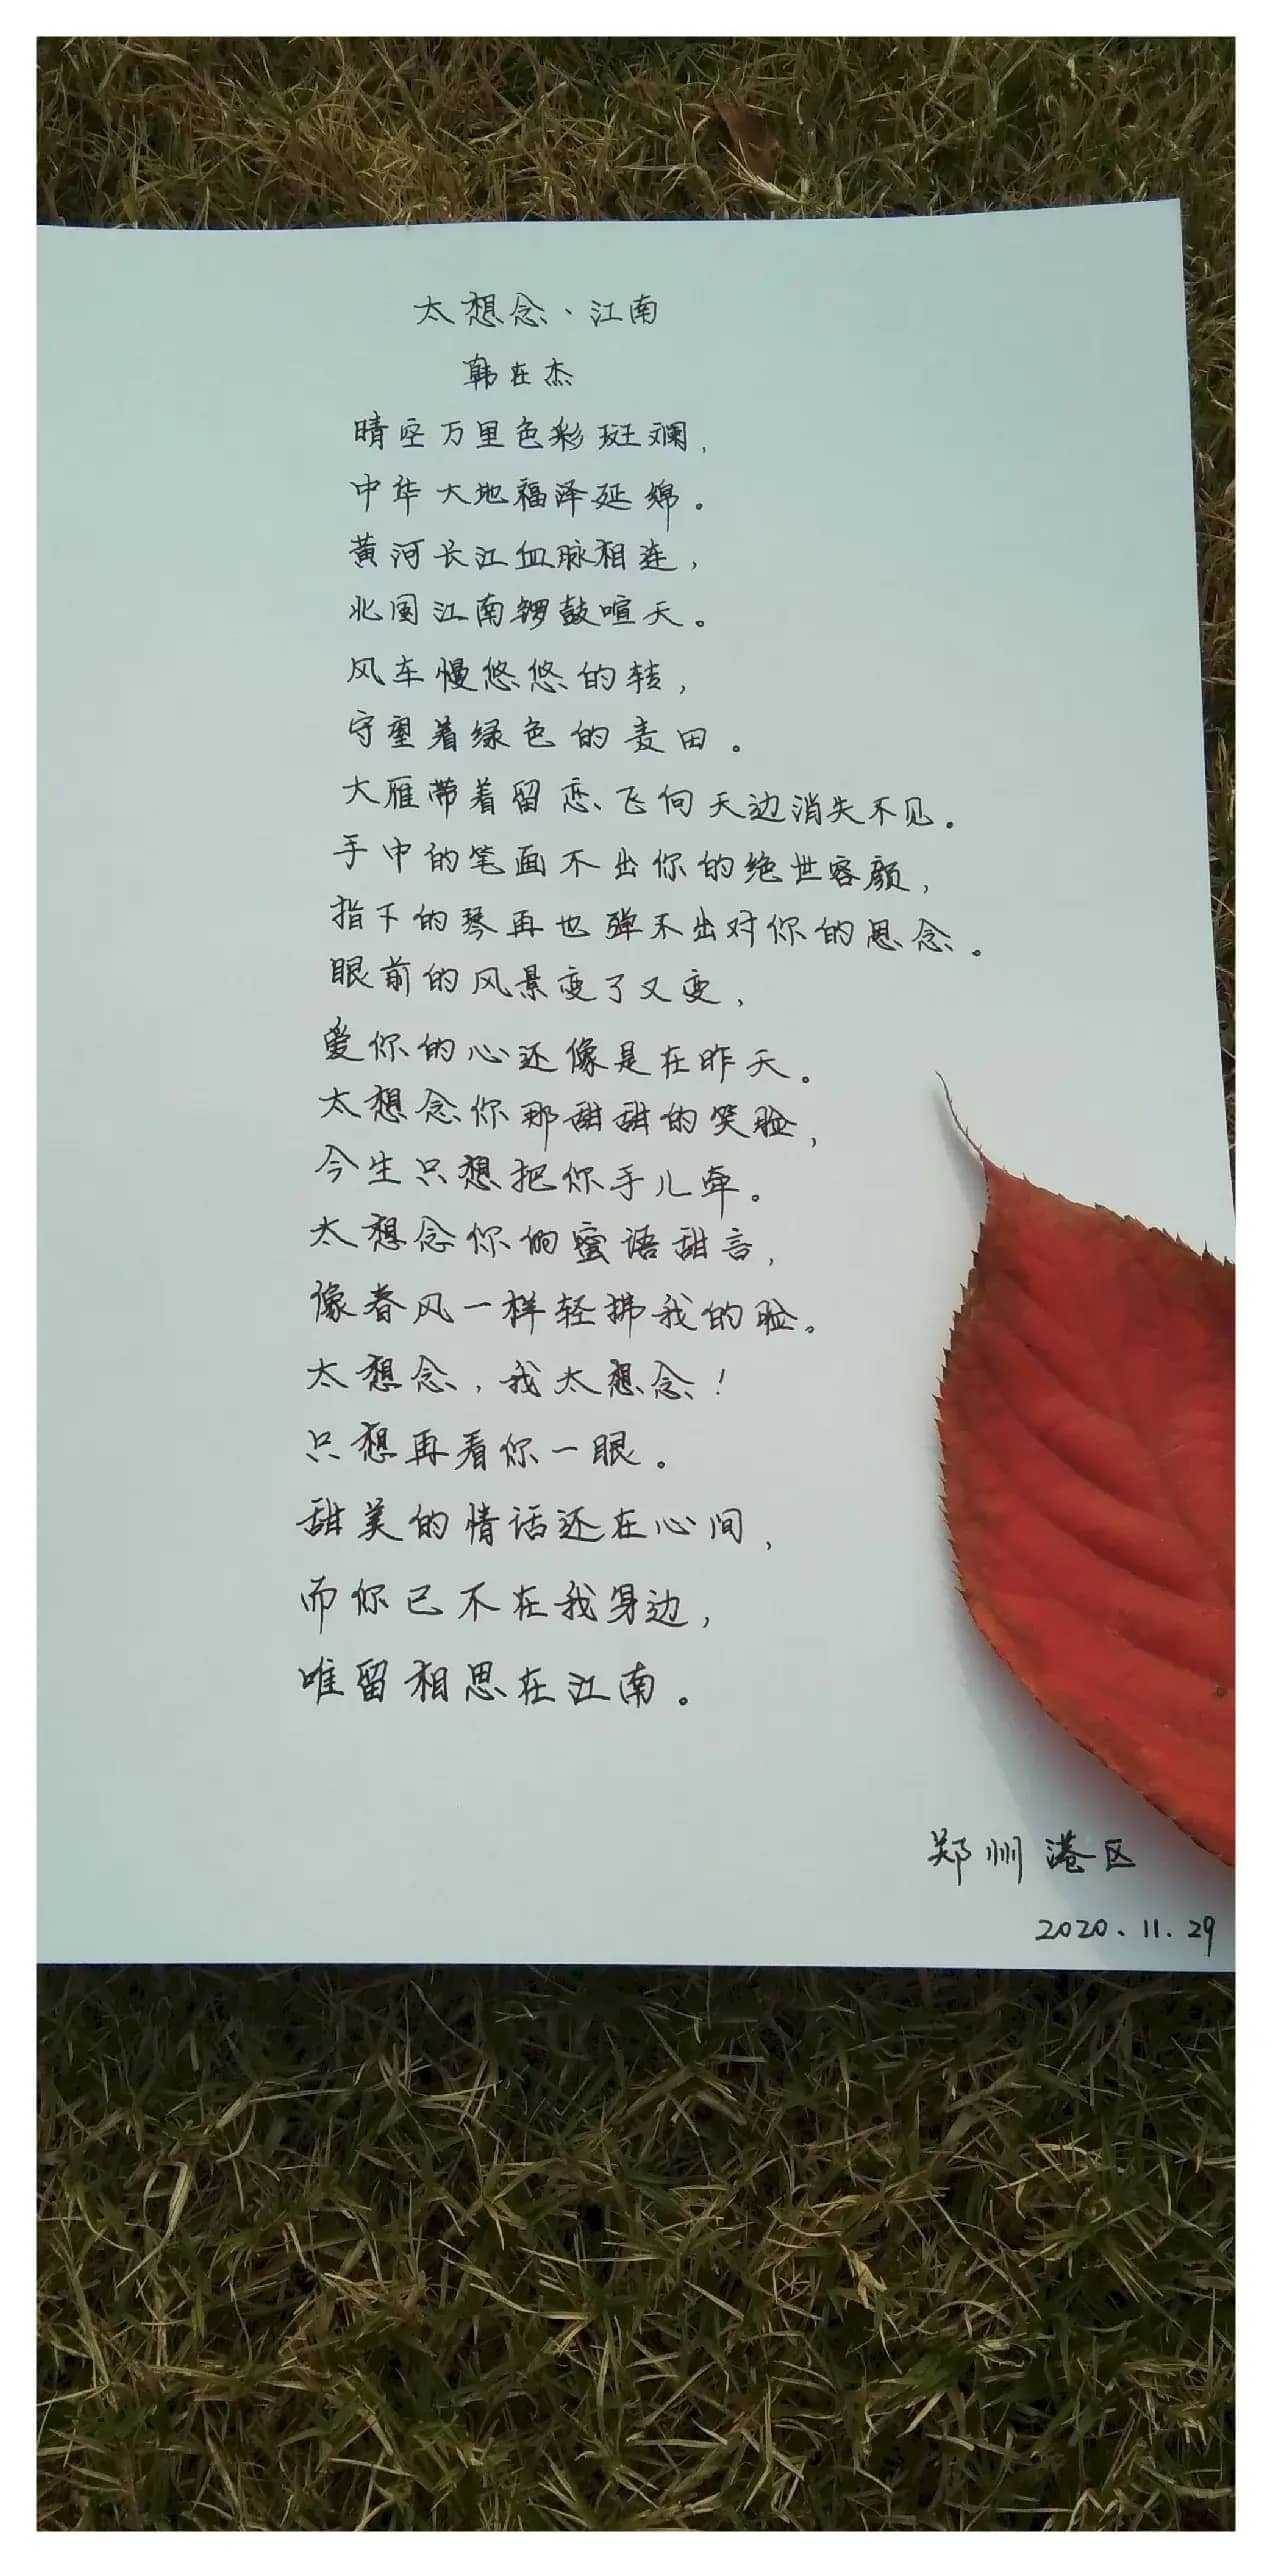 太想念、江南
韩在杰
晴空万里色彩斑斓,
中华大地福泽延绵。
黄河长江血脉相连,
北国江南锣鼓喧天。
风车慢悠悠的转,
守望着绿色的麦田。
大雁带着留恋飞向天边消失不见。
手中的笔画不出你的绝世容颜,
指下的琴再也弹不出对你的思念。
眼前的风景变了又变,
爱你的心还像是在昨天。
太想念你那甜甜的笑脸,
今生只想把你手儿牵。
太想念你的蜜语甜言,
像春风一样轻拂我的脸。
太想念,我太想念!
只想再看你一眼。
甜美的情话还在心间,
而你已不在我身边,
唯留相思在江南。
郑州港区
2020.11.29